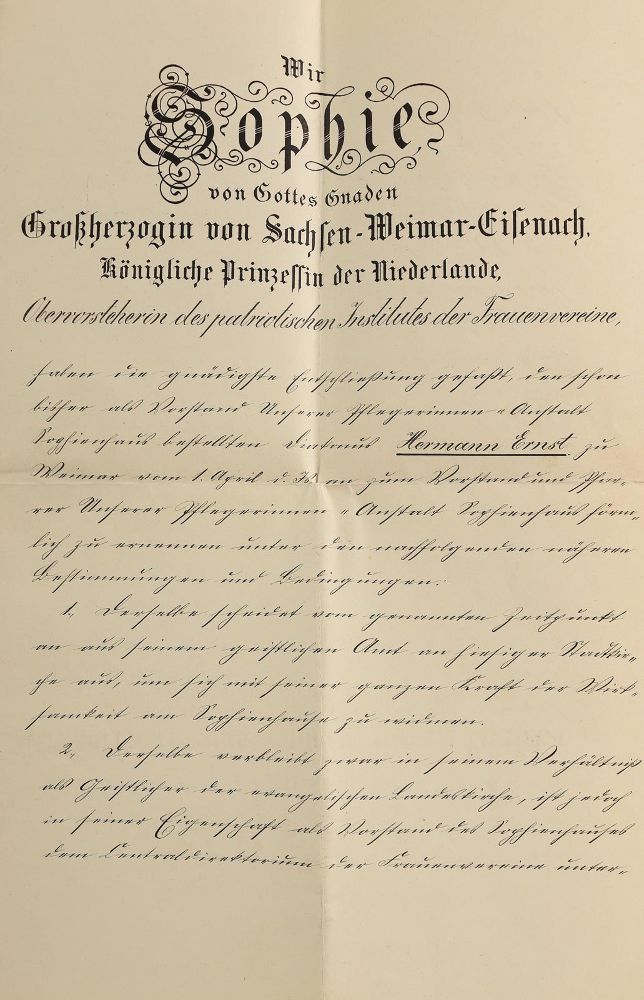 Wir
Sophie
von Gottes Gnaden
Großherzogin von Sachsen-Weimar-Eisenach,
Königliche Prinzessin der Niederlande,
Obervorsteherin des patriotischen Institutes der Frauenvereine,
haben die gnädigste Entschließung gefaßt, den schon
bisher als Vorstand Unserer Pflegerinnen-Anstalt
Sophienhaus bestellten Diakonus Hermann Ernst zu
Weimar vom 1. April d. Js an zum Vorstand und Pfar-
rer Unserer Pflegerinnen-Anstalt Sophienhaus förm-
lich zu ernennen unter den nachfolgenden näheren
Bestimmungen und Bedingungen:
1, Derselbe scheidet vom genannten Zeitpunkt
an aus seinem geistlichen Amt an hiesiger Stadtkir-
che aus, um sich mit seiner ganzen Kraft der Wirk-
samkeit am Sophienhause zu widmen.
2, Derselbe verbleibt zwar in seinem Verhältniß
als Geistlicher der evangelischen Landeskirche, ist jedoch
in seiner Eigenschaft als Vorstand des Sophienhauses
dem Centraldirektorium der Frauenvereine unter-